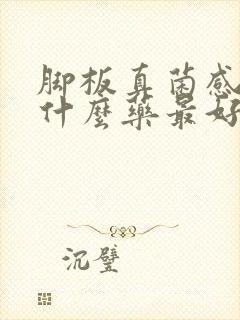 脚板真菌感
什麼藥最好
沉璧